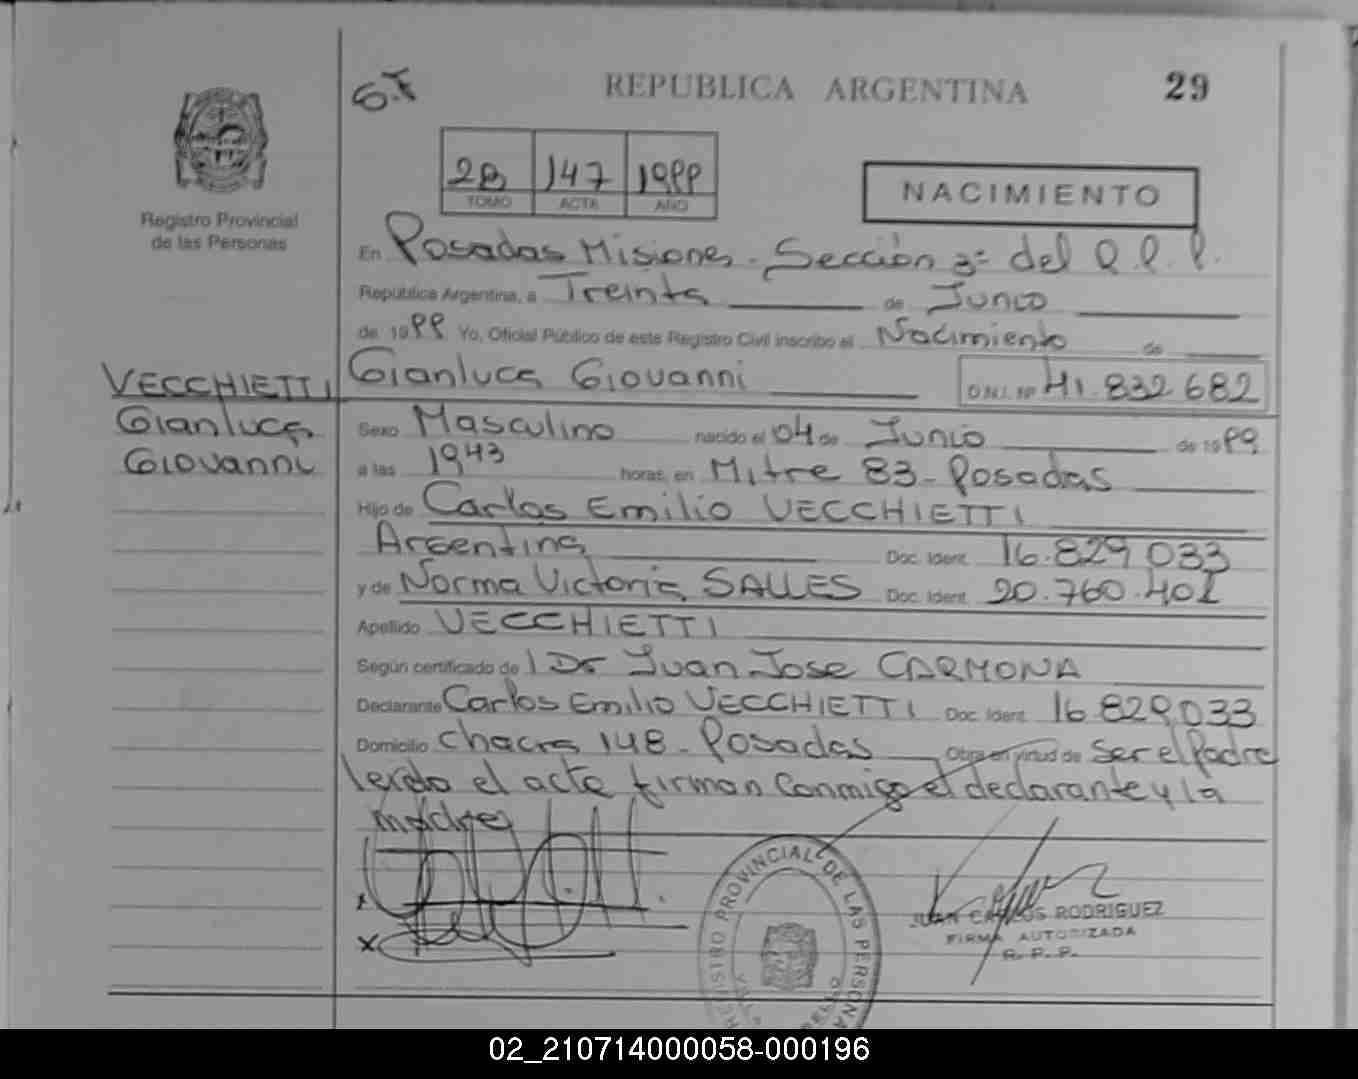 G.F
REPUBLICA ARGENTINA
29
2B 147 1999
TOMO ACTA AÑO
NACIMIENTO
Registro Provincial
de las Personas
En Posadas Misiones - Sección 3ª del R.P.P.
República Argentina, a Treinta de Junio
de 1999 Yo, Oficial Público de este Registro Civil inscribo el Nacimiento de
Gianluca Giovanni D.N.I. Nº 41.832 682
VECCHIETTI
Gianluca
Giovanni
Sexo Masculino nacido el 04 de Junio de 1999
a las 1943 horas, en Mitre 83 - Posadas
Hijo de Carlos Emilio VECCHIETTI
Argentina Doc. Ident. 16.829 033
y de Norma Victoria SALLES Doc. Ident. 20.760.401
Apellido VECCHIETTI
Según certificado de l Dr Juan Jose CARMONA
Declarante Carlos Emilio VECCHIETTI Doc. Ident. 16 829.033
Domicilio Chacra 148 - Posadas Obra en virtud de Ser el Padre
leido el acta firman conmigo el declarante y la
madre
x
x
REGISTRO PROVINCIAL DE LAS PERSONAS
JUAN CARLOS RODRIGUEZ
FIRMA AUTORIZADA
R. P. P.
02_210714000058-000196